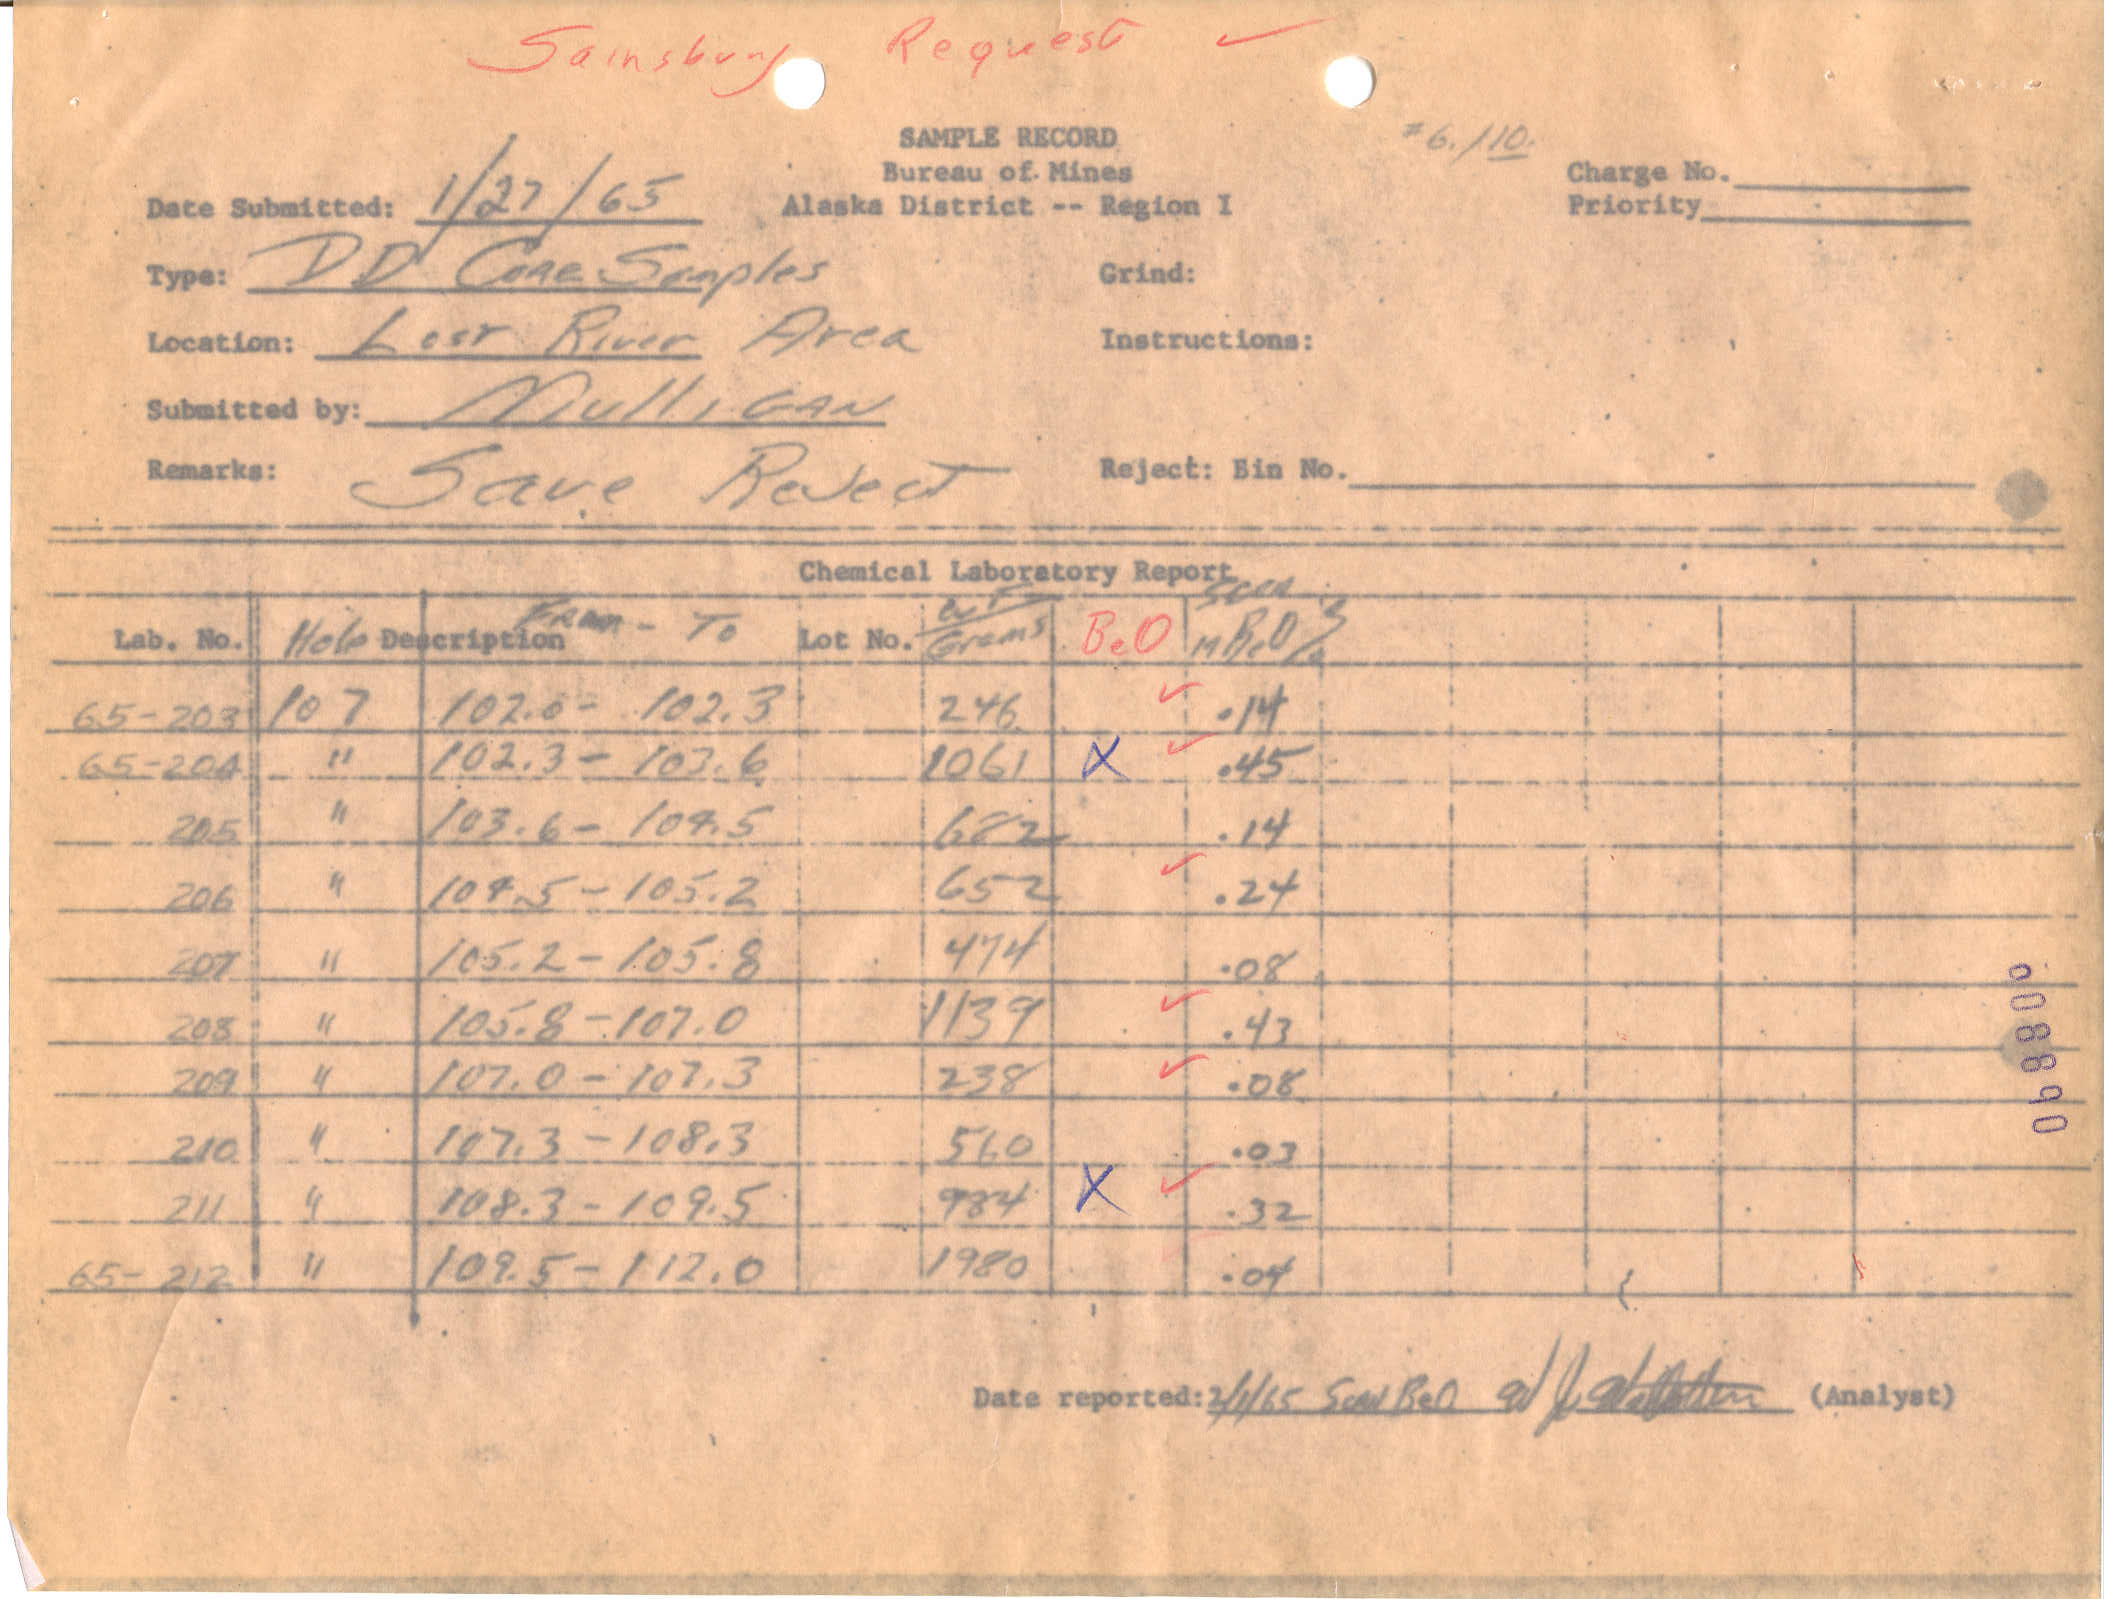 Sainsbury Request ✓
SAMPLE RECORD #6./10.
Bureau of Mines Charge No.
Date Submitted: 1/27/65 Alaska District -- Region I Priority
Type: DD Core Samples Grind:
Location: Lost River Area Instructions:
Submitted by: Mulligan
Remarks: Save Reject Reject: Bin No.
Chemical Laboratory Report
Lab. No. Hole Description From - To Lot No. wt Grams BeO BeO %
65-203 107 102.0 - 102.3 246 ✓ .14
65-204 " 102.3 - 103.6 1061 X ✓ .45
205 " 103.6 - 104.5 682 .14
206 " 104.5 - 105.2 652 ✓ .24
207 " 105.2 - 105.8 474 .08
208 " 105.8 - 107.0 1139 ✓ .43
209 " 107.0 - 107.3 238 ✓ .08
210 " 107.3 - 108.3 560 .03
211 " 108.3 - 109.5 984 X ✓ .32
65-212 " 109.5 - 112.0 1980 .04
Date reported: 2/1/65 BeO (Analyst)
008890